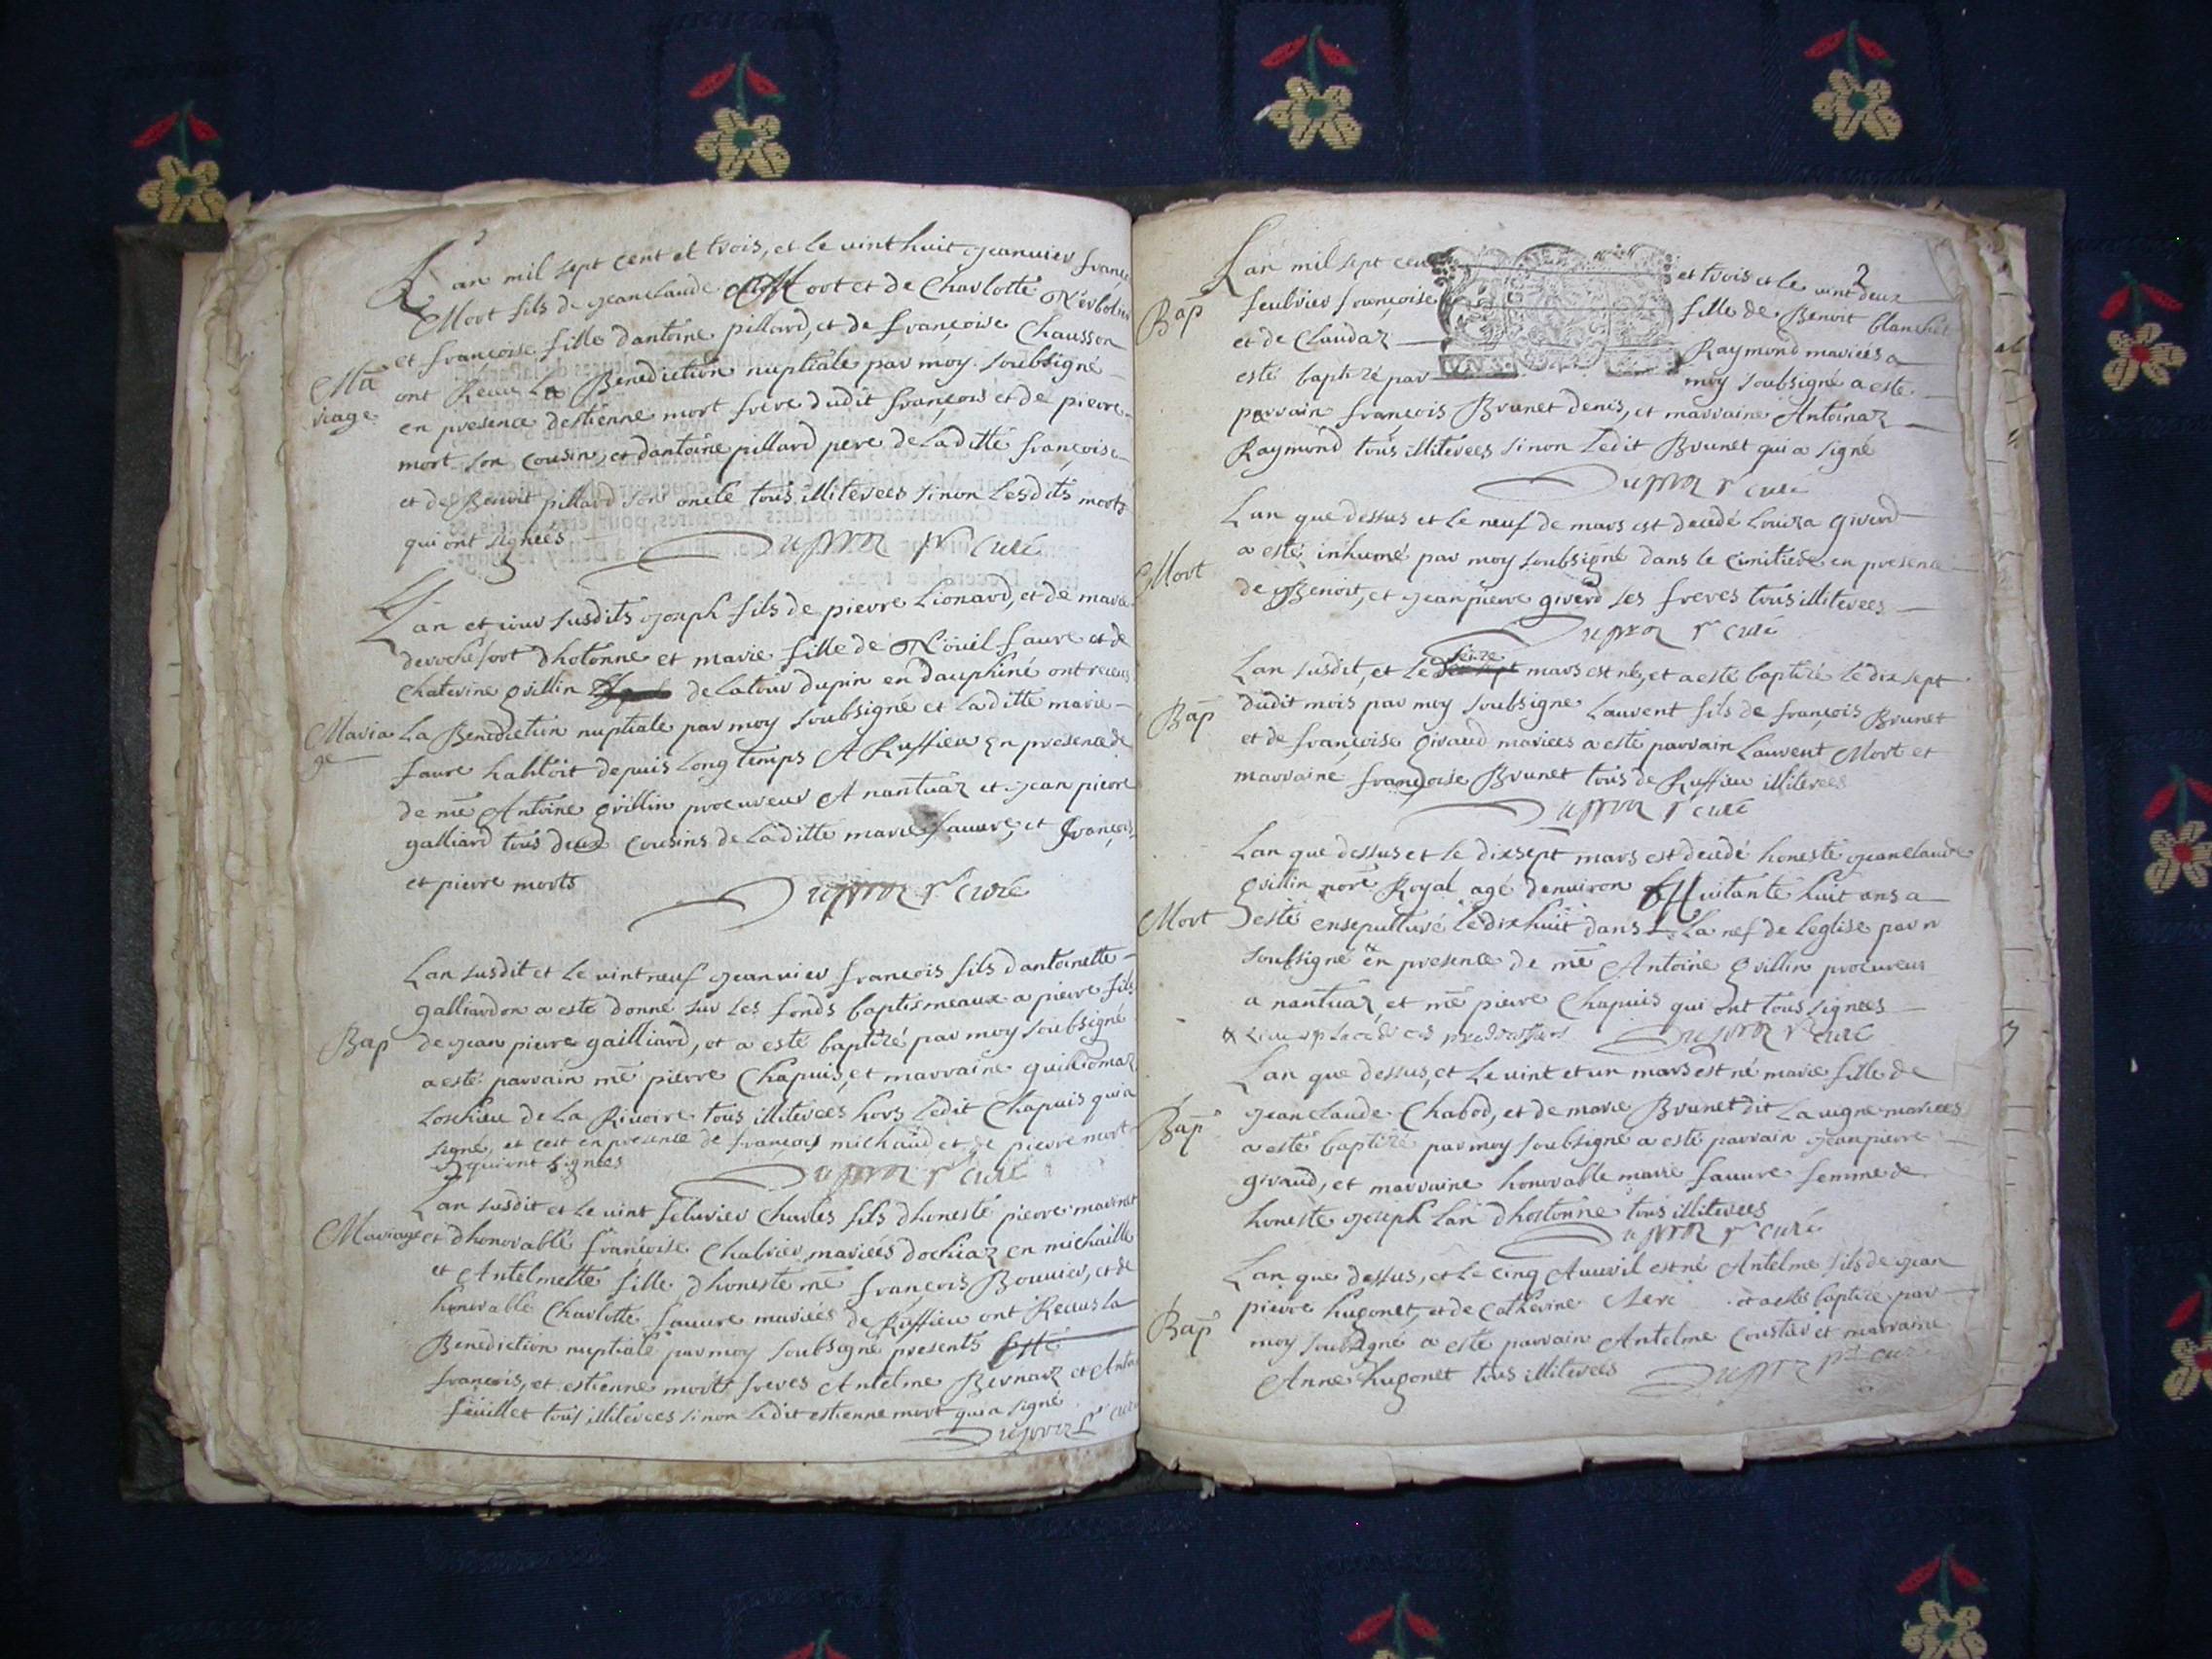 Lan mil sept cent et trois, et le vint huit jeanvier françois
Mort fils de jeanclaude Mort et de Charlotte
et françoise fille dantoine pillard, et de françoise Chausson
Ma ont Receu La Benediction nuptiale par moy soubsigné
riage en presence destienne mort frere dudit françois et de pierre
mort son cousin, et dantoine pillard pere de laditte françoise
et de Benoit pillard son oncle tous illiterees sinon lesdits morts
qui ont signees curé
Lan et jour susdits joseph fils de pierre Lionard, et de marie
derochefort dhotonne et marie fille de Nouil faure et de
Chaterine Gvillin de latour dupin en dauphiné ont receus
Maria La Benediction nuptiale par moy soubsigné et laditte marie
ge faure habitoit depuis long temps A Ruffieu En presence de
de me Antoine Gvillin procureur A nantuaz et jean pierre
galliard tous deux cousins de laditte marie fauure, et françois
et pierre morts curé
Lan susdit et le vint neuf jeanvier françois fils dantoinette
galliardon a esté donné sur les fonds baptismeaux a pierre fils
Bap de jean pierre gailliard, et a esté baptizé par moy soubsigné
a esté parrain me pierre Chapuis, et marraine
de La Rivoire tous illiterees hors ledit Chapuis qui a
signé, et cest en presence de françois michaud et de pierre mort
qui ont signees curé
Lan susdit et le vint feburier Charles fils dhoneste pierre
Mariage et dhonorable françoise Chabrier, mariés dochiaz en michaille
et Antelmette fille dhoneste me françois Bouvier, et de
honorable Charlotte fauure mariés de Ruffieu ont Receus la
Benediction nuptiale par moy soubsigné presents
françois, et estienne morts freres Antelme Bernarz et
feüillet tous illiterees sinon ledit estienne mort qui a signé
curé
2
Lan mil sept cent et trois et le vint deux
Bap feubrier françoise fille de Benoit blanchet
et de Claudaz Raymond mariés a
esté baptizé par moy soubsigné a esté
parrain françois Brunet denis, et marraine Antoinaz
Raymond tous illiterees sinon ledit Brunet qui a signé
curé
Lan que dessus et le neuf de mars est decedé Louiza giverd
Mort a esté inhumé par moy soubsigné dans le cimitiere en presence
de Benoit, et jeanpierre giverd ses freres tous illiterees
curé
Lan susdit, et le seize mars est né, et a esté baptizé le dix sept
Bap dudit mois par moy soubsigné Laurent fils de françois Brunet
et de françoise Giraud mariees a esté parrain Laurent Mort et
marraine françoise Brunet tous de Ruffieu illiterees
curé
Lan que dessus et le dixsept mars est decedé honeste jeanclaude
Gvillin nore Royal agé denviron Huitante huit ans a
Mort esté ensepulturé le dix huit dans La nef de leglise par
soubsigné en presence de me Antoine Gvillin procureur
a nantuaz, et me pierre Chapuis qui ont tous signees
curé
Lan que dessus, et le vint et un mars est né marie fille de
jeanclaude Chabod, et de marie Brunet dit La vigne mariees
Bap a esté baptizé par moy soubsigné a esté parrain jeanpierre
giraud, et marraine honorable marie fauure femme de
honeste joseph Lan dhostonne tous illiterees
curé
Lan que dessus, et le cinq Auuril est né Antelme fils de jean
pierre hugonet, et de Catherine et a esté baptizé par
Bap moy soubsigné a esté parrain Antelme Coustier et marraine
Anne hugonet tous illiterees